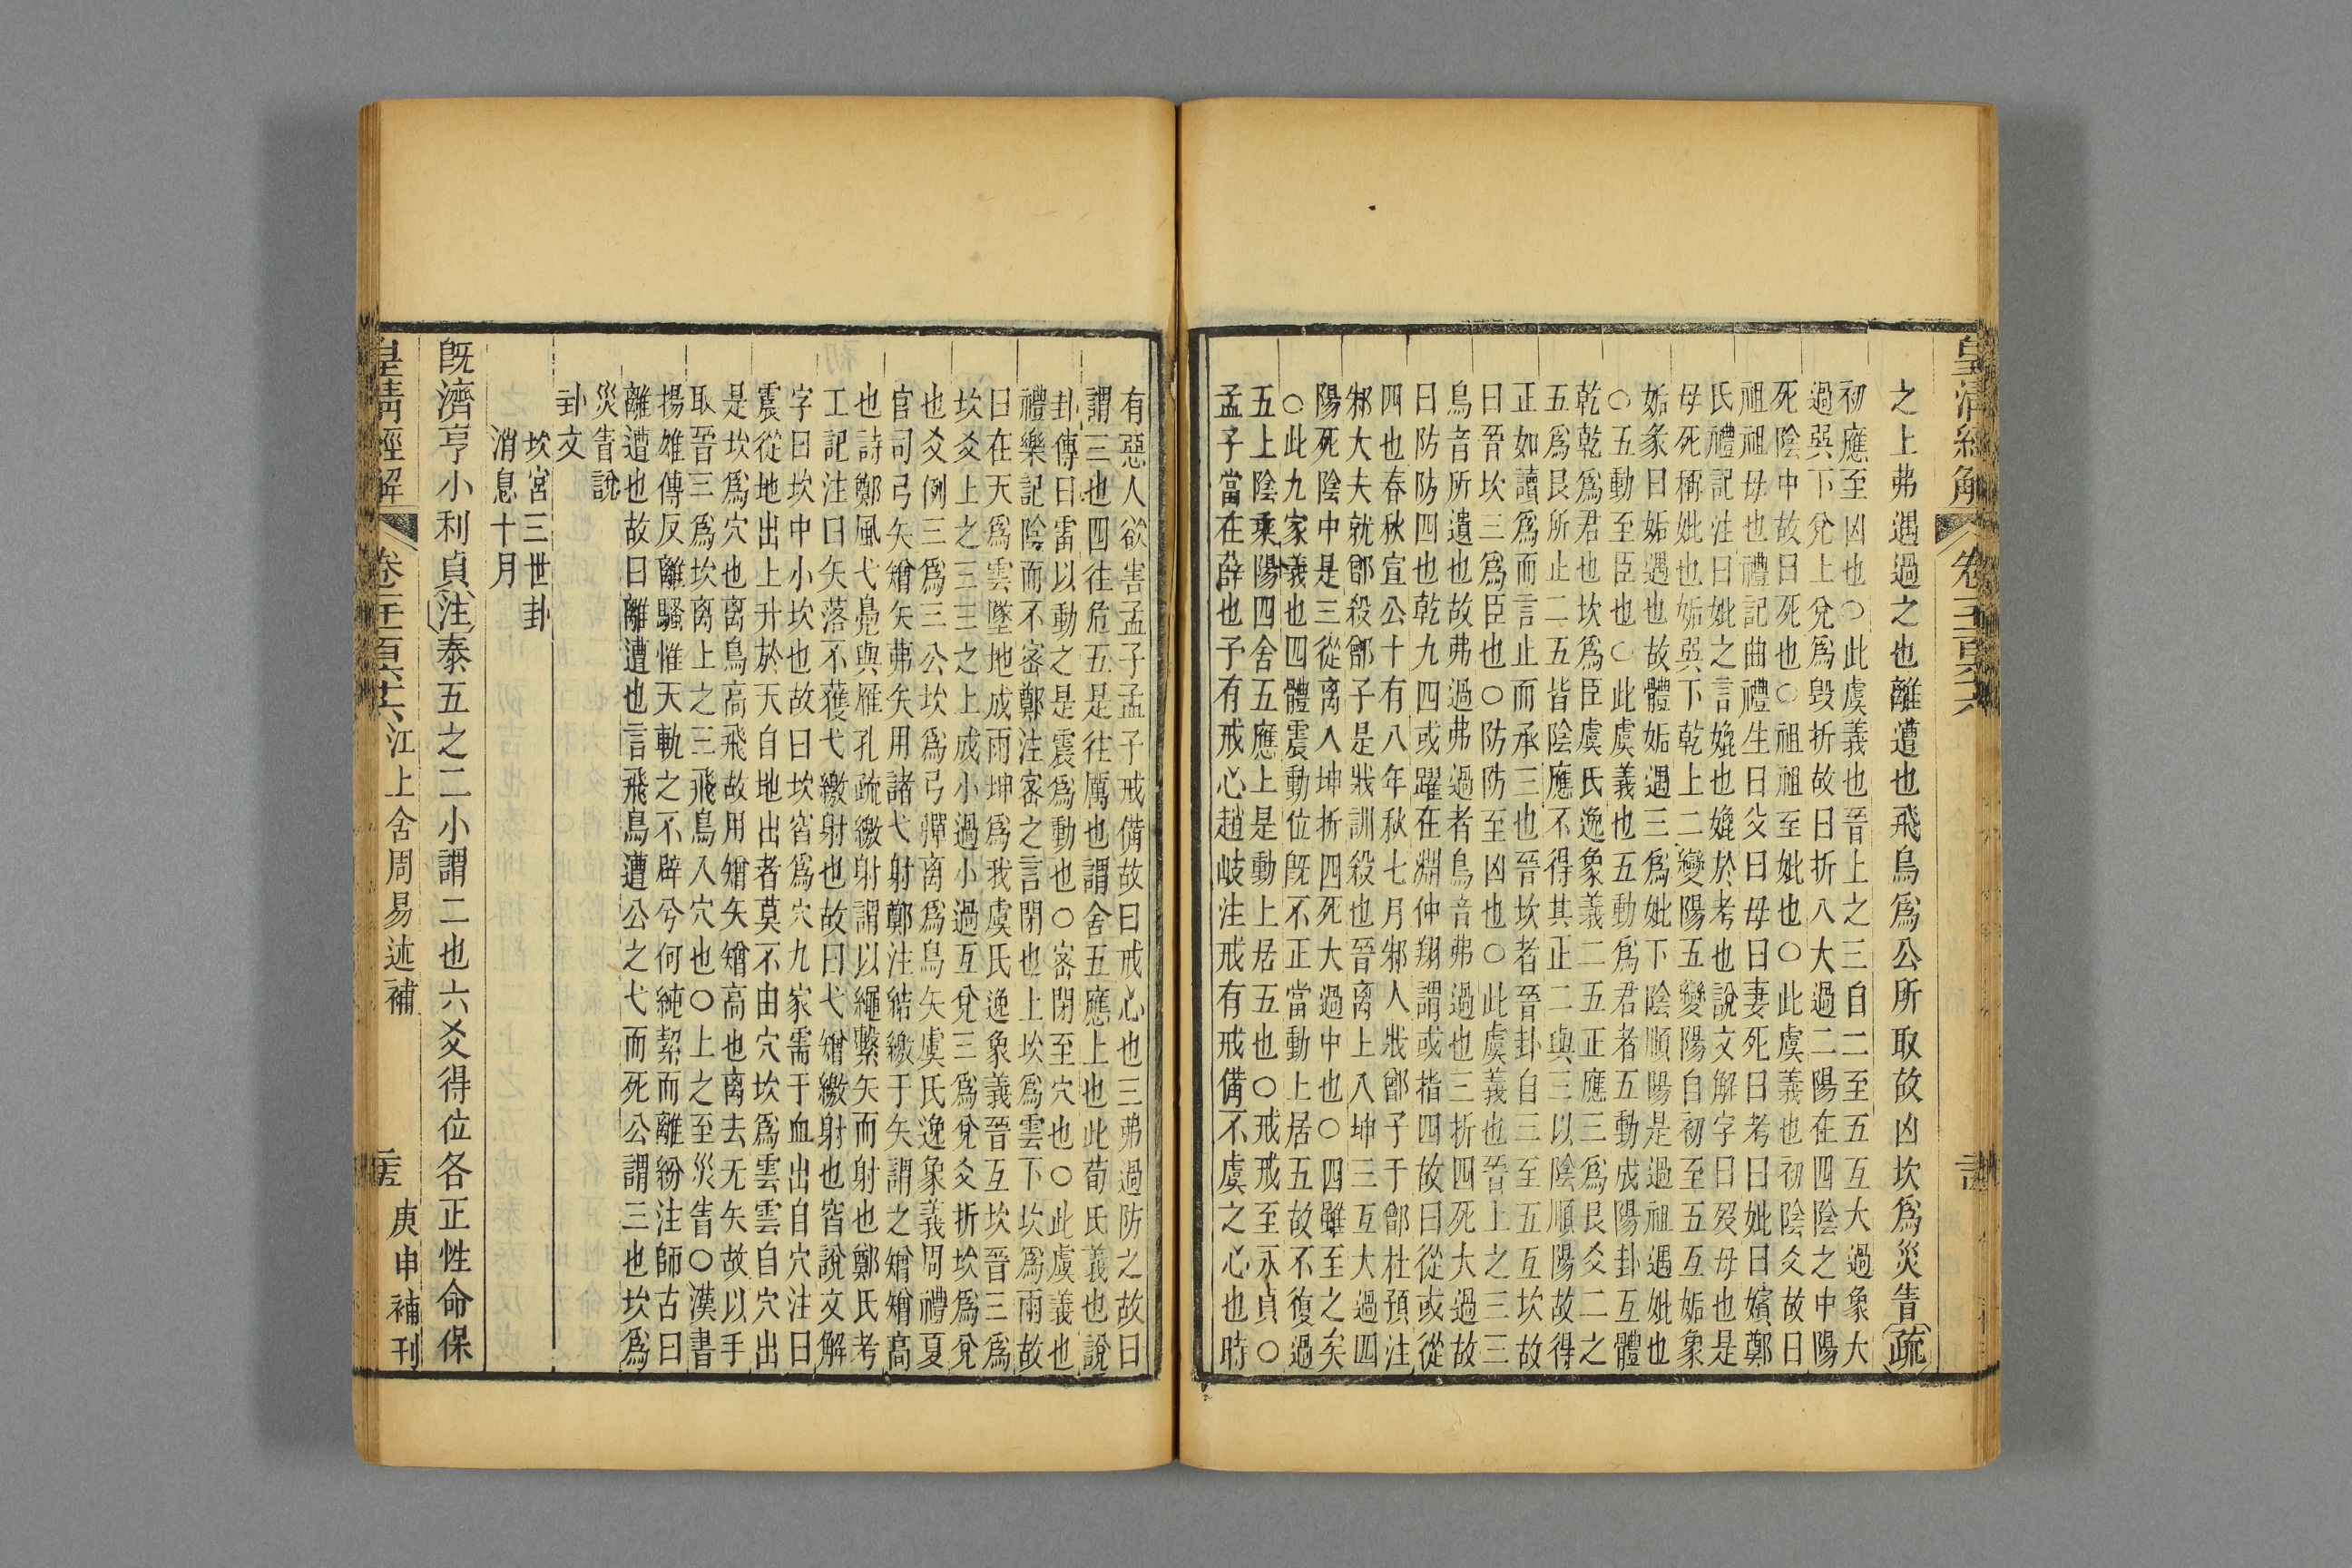 之上弗遇過之也離遭也飛鳥爲公所取故凶坎爲災眚疏
初應至凶也○此虞義也晉上之三自二至五互大過象大
過巽下兌上兌爲毀折故曰折入大過二陽在四陰之中陽
死陰中故曰死也○祖祖至妣也○此虞義也初陰爻故曰
祖祖母也禮記曲禮生曰父曰母曰妻死曰考曰妣曰嬪鄭
氏禮記注曰妣之言媲也媲於考也說文解字曰歿母也是
母死稱妣也姤巽下乾上二變陽五變陽自初至五互姤象
姤彖曰姤遇也故體姤遇三爲妣下陰順陽是過祖遇妣也
○五動至臣也○此虞義也五動爲君者五動成陽卦互體
乾乾爲君也坎爲臣虞氏逸象義二五正應三爲艮爻二之
五爲艮所止二五皆陰應不得其正二與三以陰順陽故得
正如讀爲而言止而承三也晉坎者晉卦自三至五互坎故
曰晉坎三爲臣也○防防至凶也○此虞義也晉上之三三
鳥音所遺也故弗過弗過者鳥音弗過也三折四死大過故
曰防防四也乾九四或躍在淵仲翔謂或指四故曰從或從
四也春秋宣公十有八年秋七月邾人戕鄫子于鄫杜預注
邾大夫就鄫殺鄫子是戕訓殺也晉离上入坤三互大過四
陽死陰中是三從离入坤折四死大過中也○四雖至之矣
○此九家義也四體震動位旣不正當動上居五故不復過
五上陰乘陽四舍五應上是動上居五也○戒戒至永貞○
孟子當在薛也予有戒心趙岐注戒有戒備不虞之心也時
有惡人欲害孟子孟子戒備故曰戒心也三弗過防之故曰
謂三也四往危五是往厲也謂舍五應上也此荀氏義也說
卦傳曰雷以動之是震爲動也○密閉至穴也○此虞義也
禮樂記陰而不密鄭注密之言閉也上坎爲雲下坎爲雨故
曰在天爲雲墜地成雨坤爲我虞氏逸象義晉互坎晉三爲
坎爻上之三三之上成小過小過互兌三爲兌爻折坎爲兌
也爻例三爲三公坎爲弓彈离爲鳥矢虞氏逸象義周禮夏
官司弓矢矰矢茀矢用諸弋射鄭注結繳于矢謂之矰矰高
也詩鄭風弋鳧與雁孔疏繳射謂以繩繫矢而射也鄭氏考
工記注曰矢落不獲弋繳射也故曰弋矰繳射也窞說文解
字曰坎中小坎也故曰坎窞爲穴九家需于血出自穴注曰
震從地出上升於天自地出者莫不由穴坎爲雲雲自穴出
是坎爲穴也离鳥高飛故用矰矢矰高也离去无矢故以手
取晉三爲坎离上之三飛鳥入穴也○上之至災眚○漢書
揚雄傳反離騷惟天軌之不辟兮何純絜而離紛注師古曰
離遭也故曰離遭也言飛鳥遭公之弋而死公謂三也坎爲
災眚說
卦文
坎宮三世卦
消息十月
旣濟亨小利貞注泰五之二小謂二也六爻得位各正性命保
皇淸經解 江上舍周易述補 庚申補刊